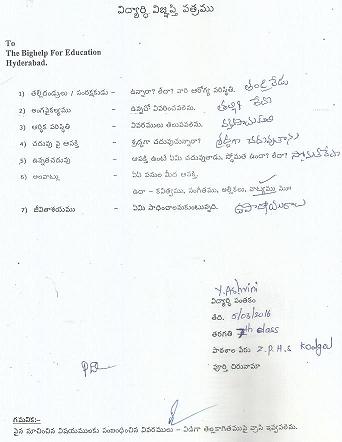 విద్యార్థి విజ్ఞప్తి పత్రము
To
The Bighelp For Education
Hyderabad.
1) తల్లిదండ్రులు / సంరక్షకుడు - ఉన్నారా? లేదా? వారి ఆరోగ్య పరిస్థితి. తండ్రి లేడు
2) అంగవైకల్యము - ఉన్నచో వివరించవలెను. లేదు
3) ఆర్థిక పరిస్థితి - వివరములు తెలుపవలెను.
4) చదువు పై ఆసక్తి - శ్రద్ధగా చదువుచున్నారా? శ్రద్ధగా చదువుతాను
5) ఉన్నతచదువు - ఆసక్తి ఉంటే ఏమి చదువుతారు. స్తోమత ఉందా? లేదా? స్తోమత లేదు
6) అలవాట్లు - ఏఏ పనుల మీద ఆసక్తి.
ఉదా - కవిత్వము, సంగీతము, అల్లికలు, నాట్యము
7) జీవితాశయము - ఏమి సాధించాలనుకుంటున్నది. ఉపాధ్యాయురాలు
Y. Ashvini
విద్యార్థి సంతకం
తేది. 5/03/2016
తరగతి 7th class
పాఠశాల పేరు Z.P.H.S Kodgal
పూర్తి చిరునామా
గమనిక:-
పైన సూచించిన విషయములకు సంబంధించిన వివరములు - విడిగా తెల్లకాగితముపై వ్రాసి ఇవ్వవలెను.